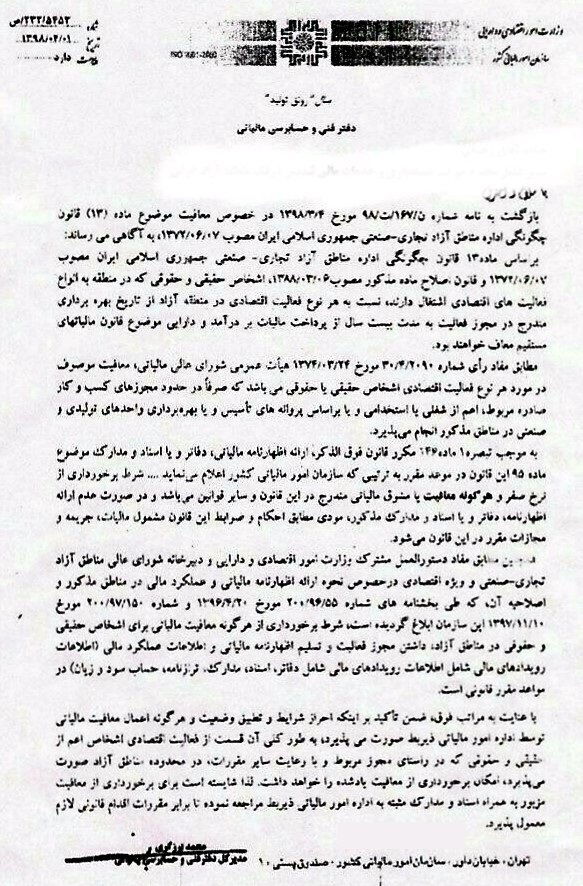 وزارت امور اقتصادی و دارایی
سازمان امور مالیاتی کشور
شماره ۲۳۲/۵۴۵۲/ص
تاریخ ۱۳۹۸/۰۴/۰۱
پیوست دارد
سال "رونق تولید"
دفتر فنی و حسابرسی مالیاتی
بازگشت به نامه شماره ن/۱۶۷/ت/۹۸ مورخ ۱۳۹۸/۳/۴ در خصوص معافیت موضوع ماده (۱۳) قانون
چگونگی اداره مناطق آزاد تجاری-صنعتی جمهوری اسلامی ایران مصوب ۱۳۷۲/۰۶/۰۷، به آگاهی می رساند:
براساس ماده۱۳ قانون چگونگی اداره مناطق آزاد تجاری- صنعتی جمهوری اسلامی ایران مصوب
۱۳۷۲/۰۶/۰۷ و قانون اصلاح ماده مذکور مصوب۱۳۸۸/۰۳/۰۶، اشخاص حقیقی و حقوقی که در منطقه به انواع
فعالیت های اقتصادی اشتغال دارند، نسبت به هر نوع فعالیت اقتصادی در منطقه آزاد از تاریخ بهره برداری
مندرج در مجوز فعالیت به مدت بیست سال از پرداخت مالیات بر درآمد و دارایی موضوع قانون مالیاتهای
مستقیم معاف خواهند بود.
مطابق مفاد رأی شماره ۳۰/۴/۲۰۹۰ مورخ ۱۳۷۴/۰۳/۲۴ هیأت عمومی شورای عالی مالیاتی، معافیت موصوف
در مورد هر نوع فعالیت اقتصادی اشخاص حقیقی یا حقوقی می باشد که صرفاً در حدود مجوزهای کسب و کار
صادره مربوط، اعم از شغلی یا استخدامی و یا براساس پروانه های تأسیس و یا بهره‌برداری واحدهای تولیدی و
صنعتی در مناطق مذکور انجام می‌پذیرد.
به موجب تبصره۱ ماده۱۴۶ مکرر قانون فوق الذکر، ارائه اظهارنامه مالیاتی، دفاتر و یا اسناد و مدارک موضوع
ماده ۹۵ این قانون در موعد مقرر به ترتیبی که سازمان امور مالیاتی کشور اعلام می‌نماید .... شرط برخورداری از
نرخ صفر و هرگونه معافیت یا مشوق مالیاتی مندرج در این قانون و سایر قوانین می‌باشد و در صورت عدم ارائه
اظهارنامه، دفاتر و یا اسناد و مدارک مذکور، مودی مطابق احکام و ضوابط این قانون مشمول مالیات، جریمه و
مجازات مقرر در این قانون می‌شود.
همچنین مطابق مفاد دستورالعمل مشترک وزارت امور اقتصادی و دارایی و دبیرخانه شورای عالی مناطق آزاد
تجاری-صنعتی و ویژه اقتصادی درخصوص نحوه ارائه اظهارنامه مالیاتی و عملکرد مالی در مناطق مذکور و
اصلاحیه آن، که طی بخشنامه های شماره ۲۰۰/۹۶/۵۵ مورخ ۱۳۹۶/۴/۲۰ و شماره ۲۰۰/۹۷/۱۵۰ مورخ
۱۳۹۷/۱۱/۱۰ این سازمان ابلاغ گردیده است، شرط برخورداری از هرگونه معافیت مالیاتی برای اشخاص حقیقی
و حقوقی در مناطق آزاد، داشتن مجوز فعالیت و تسلیم اظهارنامه مالیاتی و اطلاعات عملکرد مالی (اطلاعات
رویدادهای مالی شامل اطلاعات رویدادهای مالی شامل دفاتر، اسناد، مدارک، ترازنامه، حساب سود و زیان) در
مواعد مقرر قانونی است.
با عنایت به مراتب فوق، ضمن تأکید بر اینکه احراز شرایط و تطبیق وضعیت و هرگونه اعمال معافیت مالیاتی
توسط اداره امور مالیاتی ذیربط صورت می پذیرد، به طور کلی آن قسمت از فعالیت اقتصادی اشخاص اعم از
حقیقی و حقوقی که در راستای مجوز مربوط و با رعایت سایر مقررات، در محدوده مناطق آزاد صورت
می‌پذیرد، امکان برخورداری از معافیت یادشده را خواهد داشت. لذا شایسته است برای برخورداری از معافیت
مزبور به همراه اسناد و مدارک مثبته به اداره امور مالیاتی ذیربط مراجعه نموده تا برابر مقررات اقدام قانونی لازم
معمول پذیرد.
مدیر کل دفتر فنی و حسابرسی مالیاتی
تهران ، خیابان داور ، سازمان امور مالیاتی کشور ، صندوق پستی ۱۰